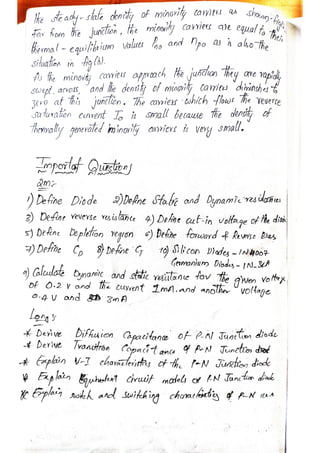 the steady-state density of minority carriers as shown fig.
far from the junction, the minority carriers are equal to their
thermal-equilibrium values Pno and npo as is also the
situation in fig(a).
As the minority carriers approach the junction they are rapidly
swept across, and the density of minority carriers diminishes to
zero at this junction. The carriers which flows the reverse
saturation current Io is small because the density of
thermally generated minority carriers is very small.
Important Questions
2m:-
1) Define Diode 2) Define Static and Dynamic resistances
3) Define reverse resistance 4) Define cut-in voltage of the diode
5) Define Depletion region 6) Define forward & Reverse Bias
7) Define CD 8) Define CT 10) Silicon Diodes - IN4007
Germanium Diodes - IN
9) Calculate Dynamic and static resistance for the given voltage
of 0.2 V and the current 1mA and another voltage
0.4 V and 3mA
Long's
* Derive Diffusion Capacitance of P-N Junction diode
* Derive Transition Capacitance of P-N Junction diode
* Explain V-I characteristics of the P-N Junction diode
* Explain Equivalent circuit models of P.N Junction diode
* Explain and switching characteristics of P-N